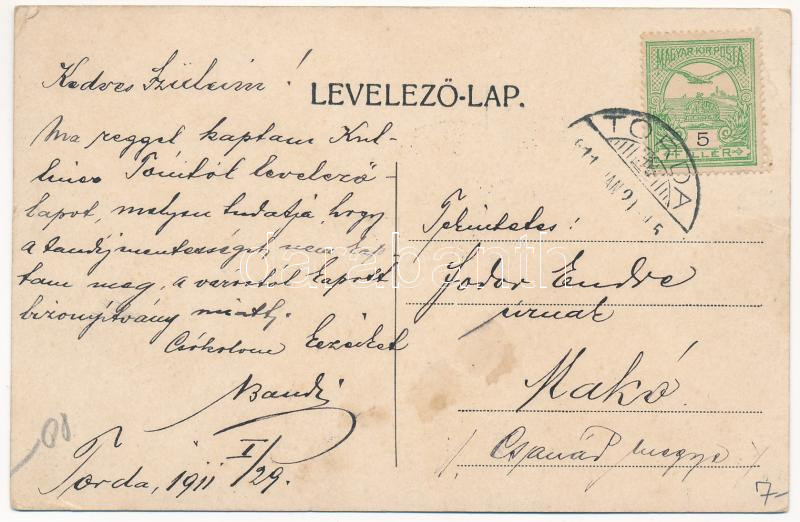 Kedves Szüleim!
LEVELEZŐ-LAP.
MAGYAR KIR. POSTA
5
FILLÉR
TORDA
911 JAN 29
Ma reggel kaptam Kul-
Tónitól levelező-
lapot, melyen tudatja, hogy
a tandíjmentességet nem kap-
tam meg, a várostól kapott
bizonyítvány miatt.
Csókolom kezeiket
Bandi
Torda, 1911 I/29.
Tekintetes:
Fodor Endre
úrnak
Makó.
/. Csanád megye ./
darabanth
7-